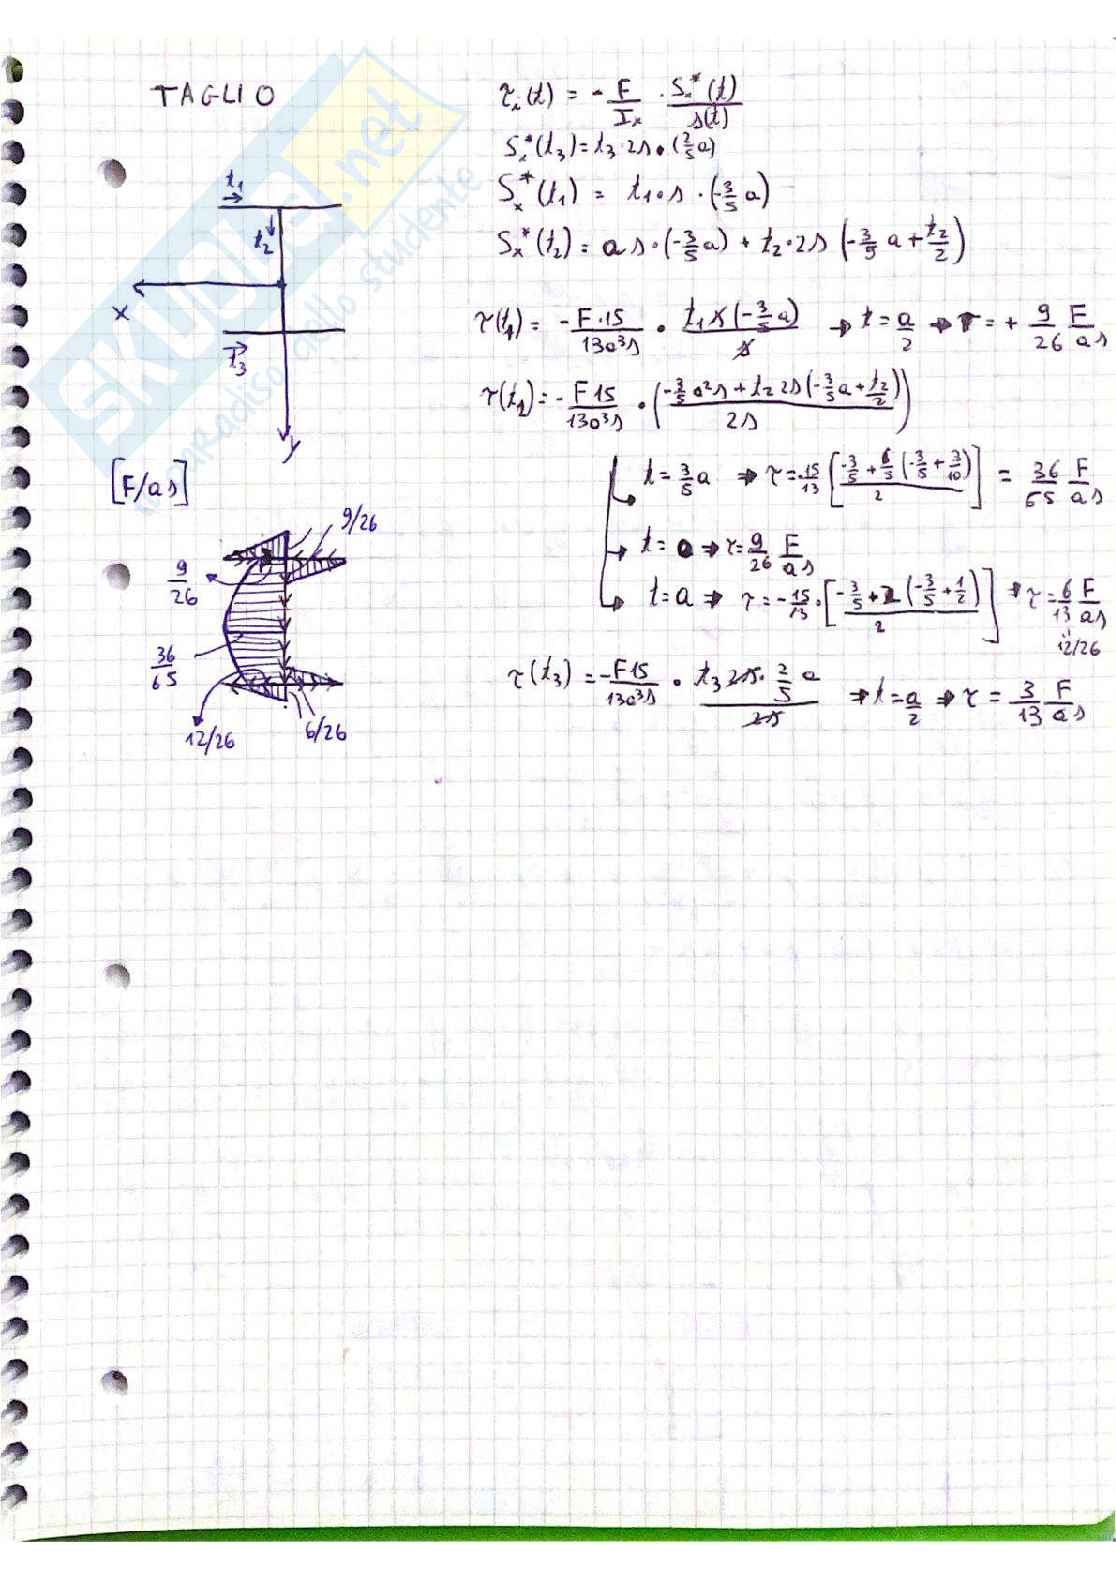 TAGLIO
τ_x(t) = - F/I_x · S_x*(t)/s(t)
S_x*(t3) = t3·2s·(2/5 a)
S_x*(t1) = t1·s·(-3/5 a)
S_x*(t2) = as·(-3/5 a) + t2·2s (-3/5 a + t2/2)
t1
t2
x
t3
y
τ(t1) = -F·15/13a³s · t1 s (-3/5 a)/s → t = a/2 → τ = + 9/26 F/as
τ(t2) = -F15/13a³s · ((-3/5 a²s + t2 2s (-3/5 a + t2/2))/2s)
t = 3/5 a ⇒ τ = -15/13 [(-3/5 + 6/5 (-3/5 + 3/10))/2] = 36/65 F/as
t = 0 ⇒ τ = 9/26 F/as
t = a ⇒ τ = -15/13 · [(-3/5 + 2 (-3/5 + 1/2))/2] ⇒ τ = 6/13 F/as
12/26
τ(t3) = -F15/13a³s · t3 2s · 2/5 a/2s ⇒ t = a/2 ⇒ τ = 3/13 F/as
[F/as]
9/26
9/26
36/65
12/26
6/26
SKUOLA.net
il paradiso dello studente